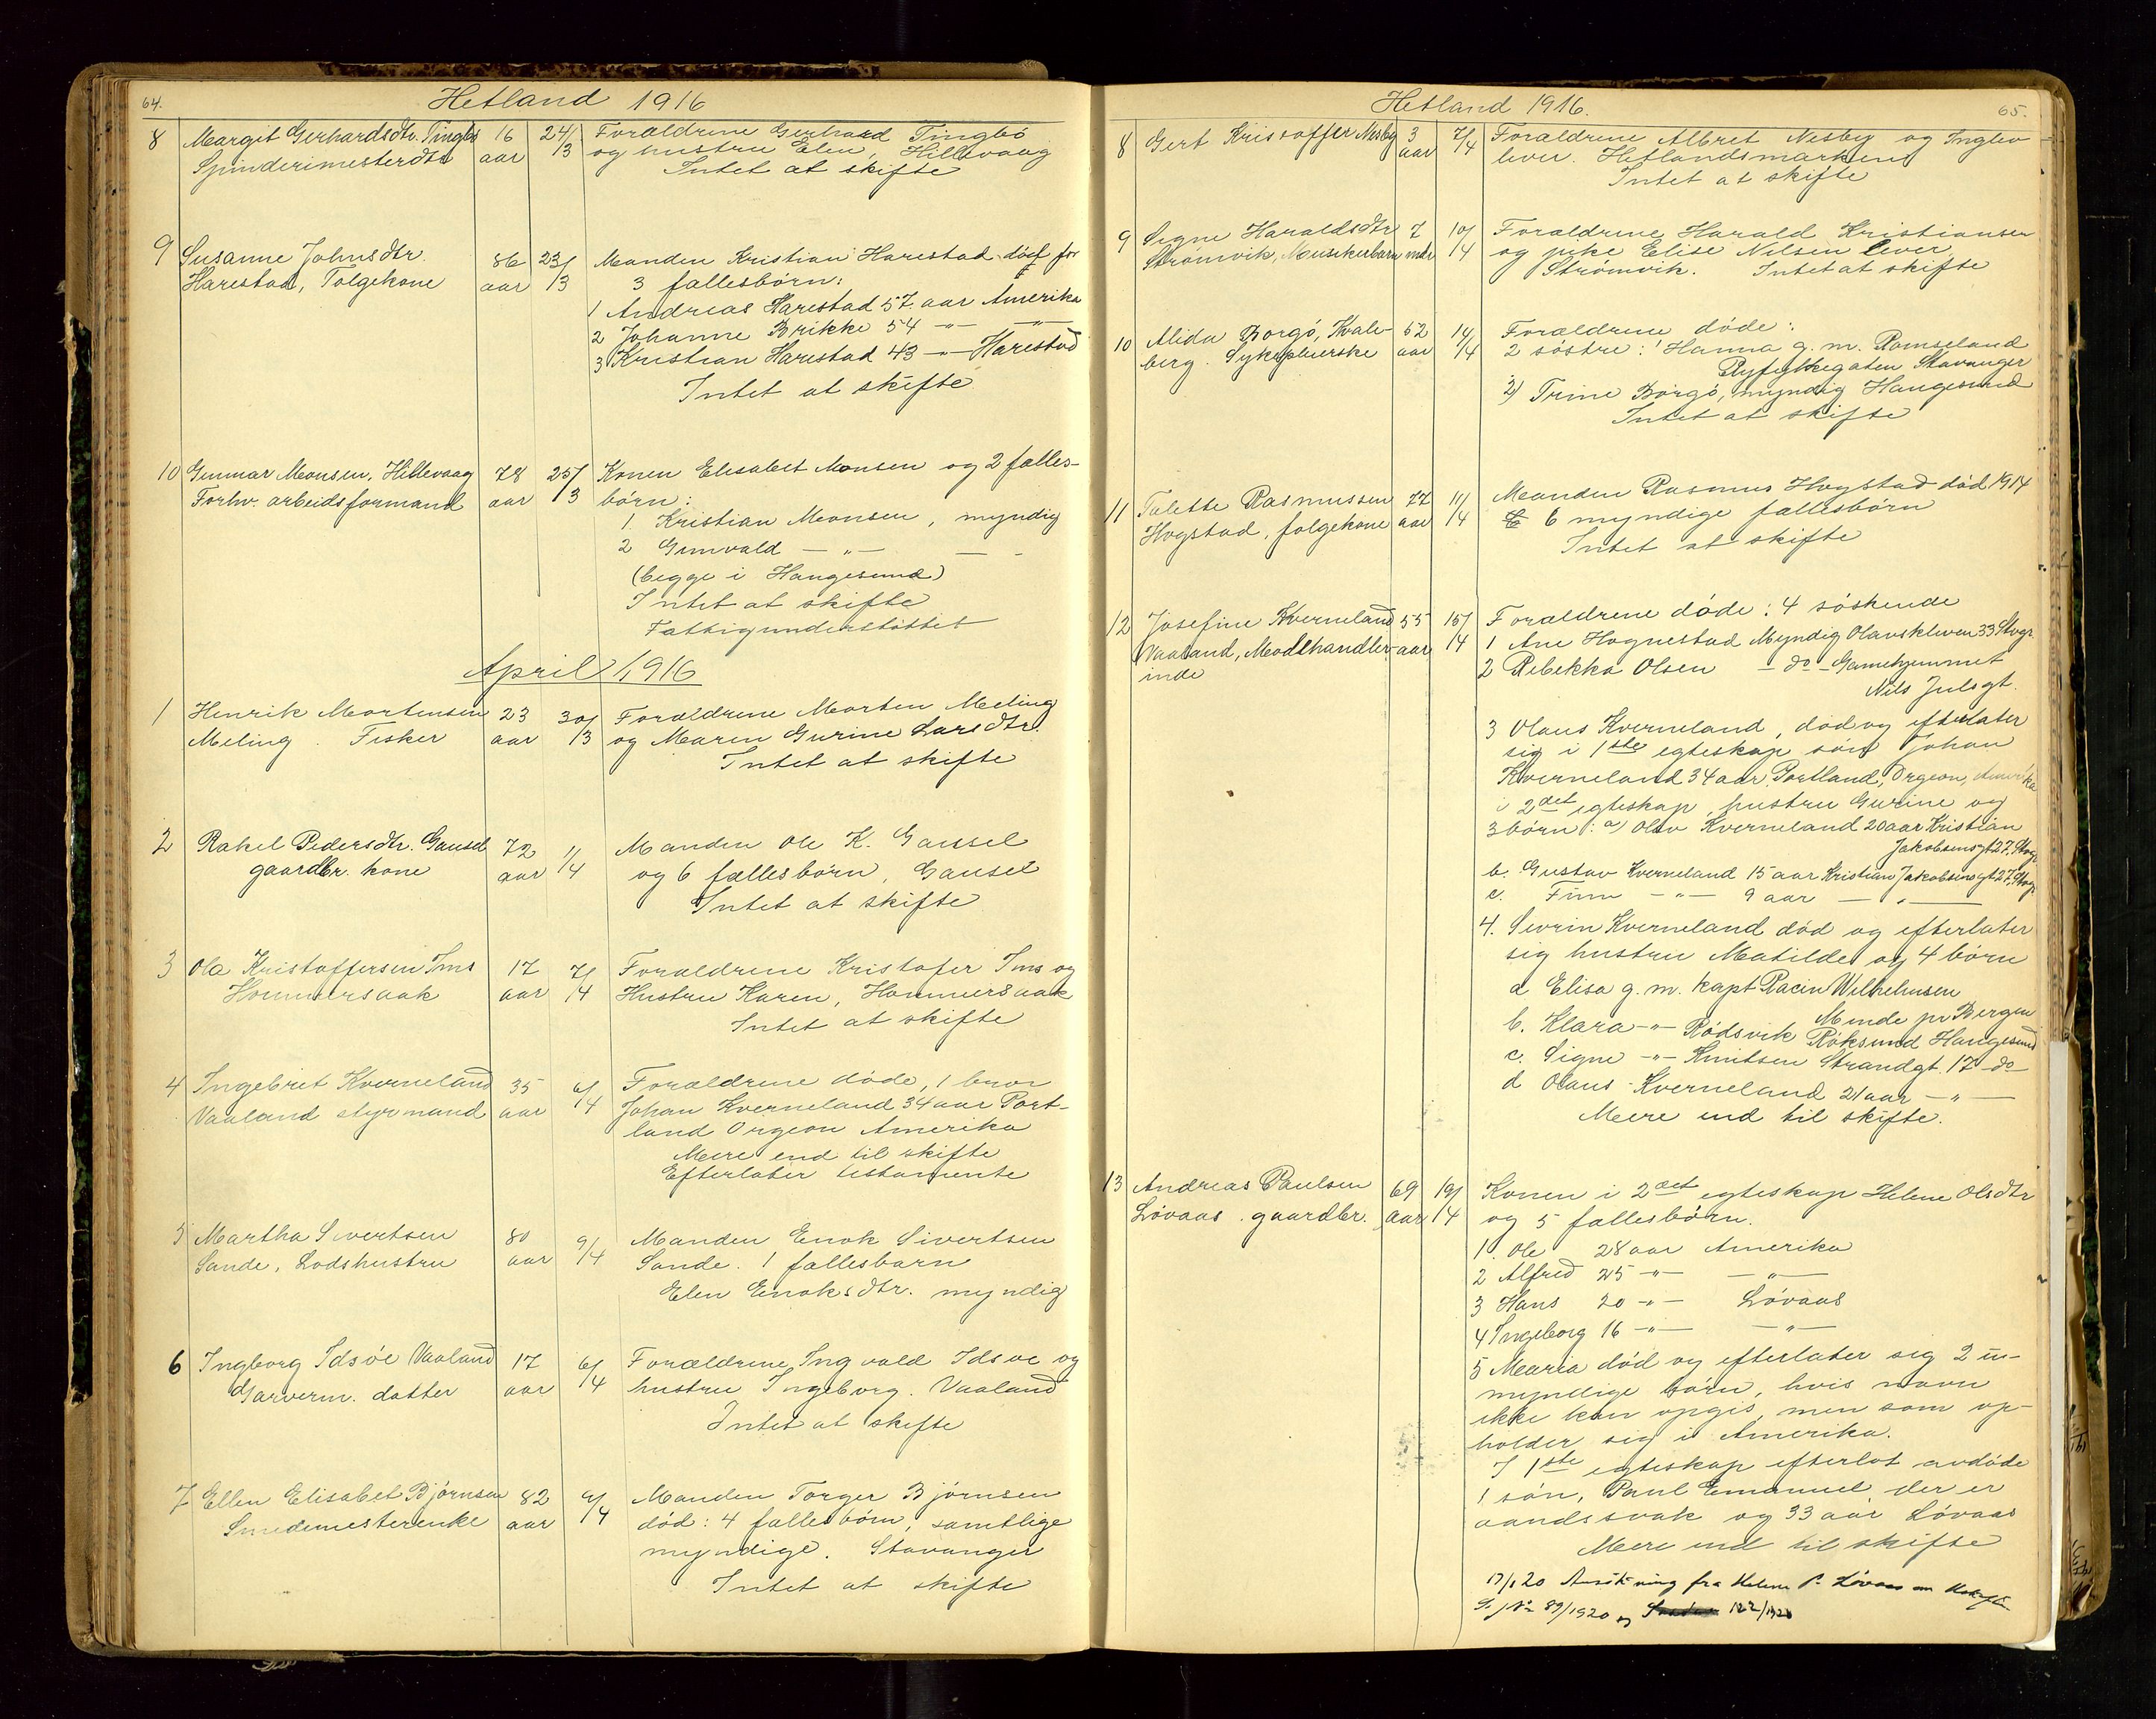 64.
Hetland 1916
8 Margit Gerhardsdtr. Tingbö 16 24/ Forældrene Gerhard Tingbö
Spinderimesterdtr aar /3 og hustru Elen, Hillevaag
Intet at skifte
9 Susanne Johnsdtr. 86 23/ Manden Kristian Harestad död før
Harestad, Folgekone aar /3 3 fallesbörn:
1 Andreas Harestad 57 aar Amerika
2 Johanne Brikke 54 -"- -"-
3 Kristian Harestad 43 -"- Harestad
Intet at skifte
10 Gunnar Monsen, Hillevaag 78 25/ Konen Elisabet Monsen og 2 falles-
Forhv. arbeidsformand aar /3 börn:
1. Kristian Monsen, myndig
2 Gunvald -"- -
(begge i Haugesund)
Intet at skifte
Fattigunderstöttet
April 1916
1 Henrik Mortensen 23 30/ Forældrene Morten Meling
Meling. Fisker aar /3 og Maren Gurine Larsdtr.
Intet at skifte
2 Rakel Pedersdtr. Gausel 72 1/ Manden Ole K. Gausel
gaardbr. kone aar /4 og 6 fællesbörn, Gausel
Intet at skifte
3 Ola Kristoffersen Ims 17 7/ Forældrene Kristofer Ims og
Hommersaak aar /4 Hustru Karen, Hommersaak
Intet at skifte
4 Ingebret Kverneland 35 6/ Forældrene döde, 1 bror
Vaaland styrmand aar /4 Johan Kverneland 34 aar Port-
land Orgeon Amerika
Mere end til skifte
Efterlater testamente
5 Martha Sivertsen 80 9/ Manden Enok Sivertsen
Sande, Lodshustru aar /4 Sande. 1 fallesbarn
Elen Enoksdtr. myndig
6 Ingborg Idsöe Vaaland 17 6/ Forældrene Ingvald Idsoe og
Garverm. datter aar /4 hustru Ingeborg. Vaaland
Intet at skifte
7 Ellen Elisabet Björnsen 82 9/ Manden Torger Björnsen
Smedemesterenke aar /4 död: 4 fallesbörn, samtlige
myndige. Stavanger
Intet at skifte
Hetland 1916.
65.
8 Gert Kristoffer Nesby 3 7/ Forældrene Albret Nesby og Inglev
aar /4 lever. Hetlandsmarken
Intet at skifte
9 Signe Haraldsdtr 7 10/ Forældrene Harald Kristiansen
Strömvik, Musikerbarn mdr /4 og pike Elise Nilsen lever,
Strömvik. Intet at skifte
10 Alida Borgö, Kvale- 52 14/ Forældrene döde:
berg. Sykepleierske aar /4 2 söstre: 1 Hanna g. m. Ramseland
Ryfylkegaten Stavanger
2) Trine Borgö, myndig Haugesund
Intet at skifte
11 Talette Rasmussen 77 11/ Manden Rasmus Hogstad död 1914
Hogstad, folgekone aar /4 6 myndige fallesbörn
Intet at skifte
12 Josefine Kverneland 55 15/ Forældrene döde: 4 söskende
Vaaland, Modehandler- aar /4 1 Ane Hognestad Myndig Olavskleven 33 Stvgr.
inde 2 Rebekka Olsen - do - Gamlehjemmet
Nils Julsgt.
3 Olaus Kverneland, död og efterlater
sig i 1ste egteskap sön Johan
Kverneland 34 aar, Portland, Orgeon, Amerika
i 2det egteskap, hustru Gurine og
3 börn: a) Olav Kverneland 20 aar Kristian
Jakobsensgt 27, Stvgr
b. Gustav Kverneland 15 aar Kristian Jakobsensgt 27, Stvgr
c. Finn -"- 9 aar -"-
4. Sevrin Kverneland död og efterlater
sig hustru Matilde og 4 börn
a Elisa g. m. Kapt Racin Wilhelmsen
Minde pr Bergen
b. Klara -"- Rödsvik Röksund Haugesund
c. Signe -"- Knutsen Strandgt. 17 - do -
d Olaus Kverneland 21 aar -"-
Mere end til skifte.
13 Andreas Paulsen 69 19/ Konen i 2det egteskap Helene Olsdtr
Lövaas. gaardbr. aar /4 og 5 fallesbörn.
1. Ole 28 aar Amerika
2 Alfred 25 -"- -"-
3 Hans 20 -"- Lövaas
4 Ingeborg 16 -"- -"-
5 Maria död og efterlater sig 2 u-
myndige börn, hvis navn
ikke kan opgis, men som op-
holder sig i Amerika.
I 1ste egteskap efterlot avdöde
1 sön, Paul Emanuel der er
aandssvak og 33 aar Lövaas
Mere end til skifte
17/1 20 Ansökning fra Helene P. Lövaas om
S. j No 89/1920 og 122/1920